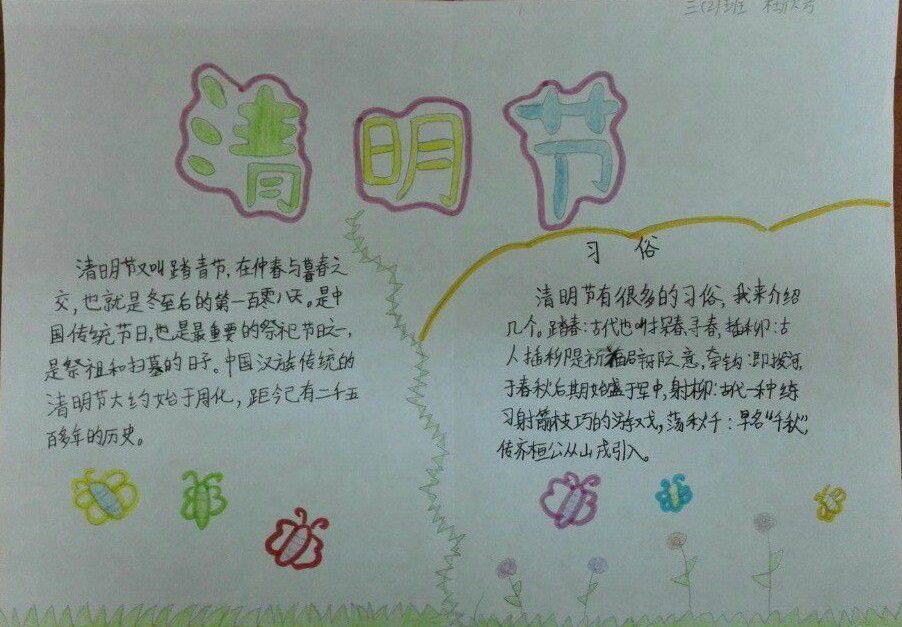 三(2)班
清明节
清明节又叫踏青节,在仲春与暮春之
交,也就是冬至后的第一百零八天。是中
国传统节日,也是最重要的祭祀节日之一,
是祭祖和扫墓的日子。中国汉族传统的
清明节大约始于周代,距今已有二千五
百多年的历史。
习俗
清明节有很多的习俗,我来介绍
几个。踏春:古代也叫探春、寻春,插柳:古
人插柳是祈福辟阮意,牵钩:即拨河,
于春秋后期始盛于军中,射柳:古代一种练
习射箭技巧的游戏,荡秋千:早名“千秋”,
传齐桓公从山戎引入。